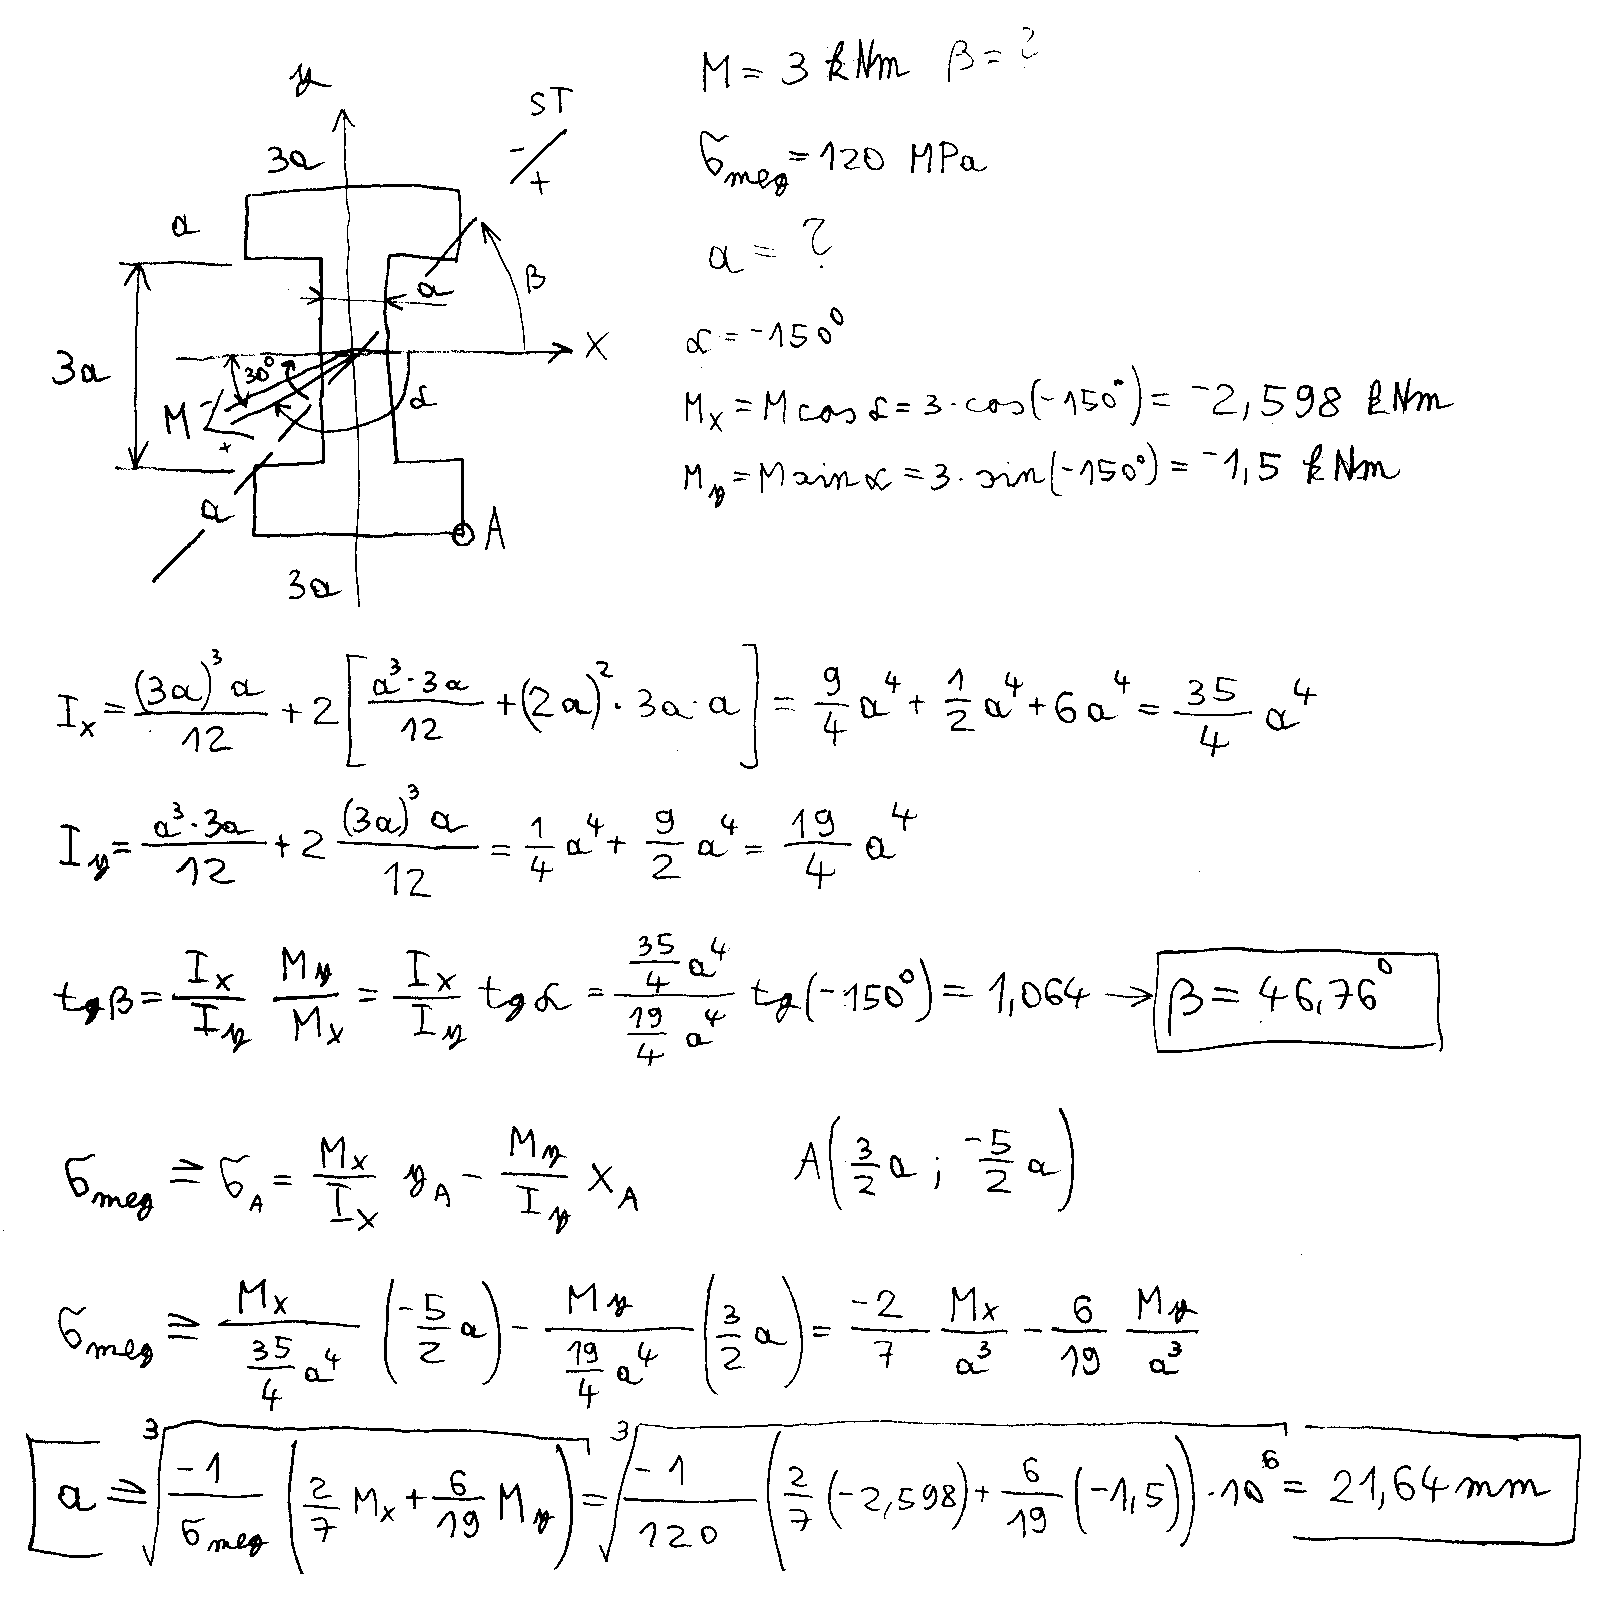 M = 3 kNm β = ?
σmeg = 120 MPa
a = ?
α = -150°
Mx = M cos α = 3·cos(-150°) = -2,598 kNm
My = M sin α = 3·sin(-150°) = -1,5 kNm
y
ST
3a
-
+
a
a
β
x
3a
30°
α
M
-
+
a
A
3a
Ix = (3a)³a/12 + 2[a³·3a/12 + (2a)²·3a·a] = 9/4 a⁴ + 1/2 a⁴ + 6a⁴ = 35/4 a⁴
Iy = a³·3a/12 + 2 (3a)³a/12 = 1/4 a⁴ + 9/2 a⁴ = 19/4 a⁴
tgβ = Ix/Iy My/Mx = Ix/Iy tgα = (35/4 a⁴)/(19/4 a⁴) tg(-150°) = 1,064 → β = 46,76°
σmeg ≥ σA = Mx/Ix yA - My/Iy xA A(3/2 a ; -5/2 a)
σmeg ≥ Mx/(35/4 a⁴) (-5/2 a) - My/(19/4 a⁴) (3/2 a) = -2/7 Mx/a³ - 6/19 My/a³
a ≥ ³√(-1/σmeg (2/7 Mx + 6/19 My)) = ³√(-1/120 (2/7 (-2,598) + 6/19 (-1,5))·10⁶) = 21,64 mm